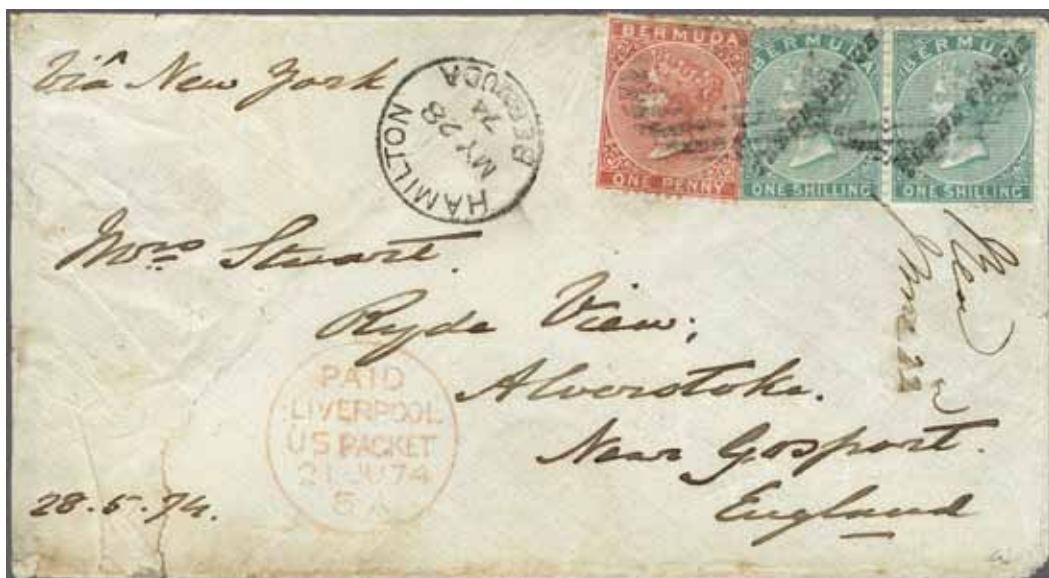 Viâ New York
HAMILTON
MY 28
74
BERMUDA
BERMUDA
ONE PENNY
BERMUDA
ONE SHILLING
BERMUDA
ONE SHILLING
June 22
Mrs Stuart.
Ryde View,
Alverstoke.
Near Gosport.
England
PAID
LIVERPOOL
US PACKET
21 JU 74
28.5.74.